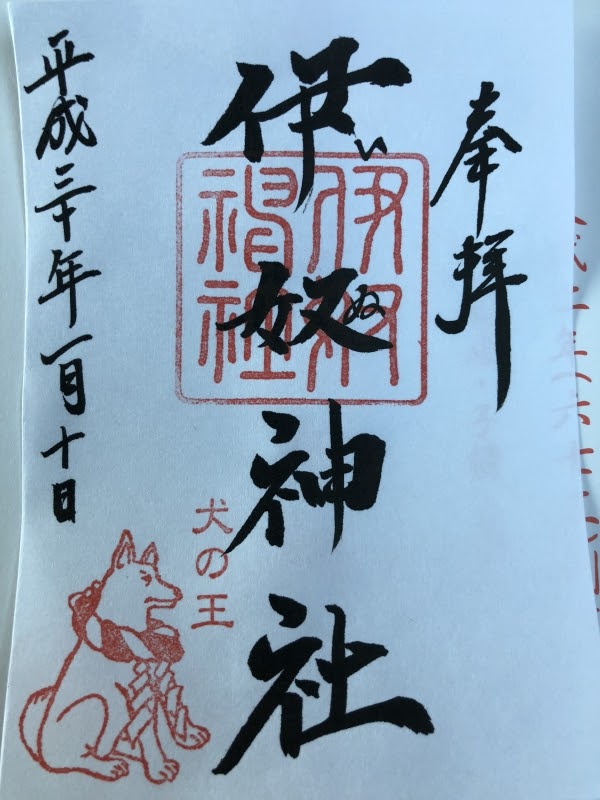 奉拝
伊奴神社
いぬ
伊奴神社
犬の王
平成三十年一月十日